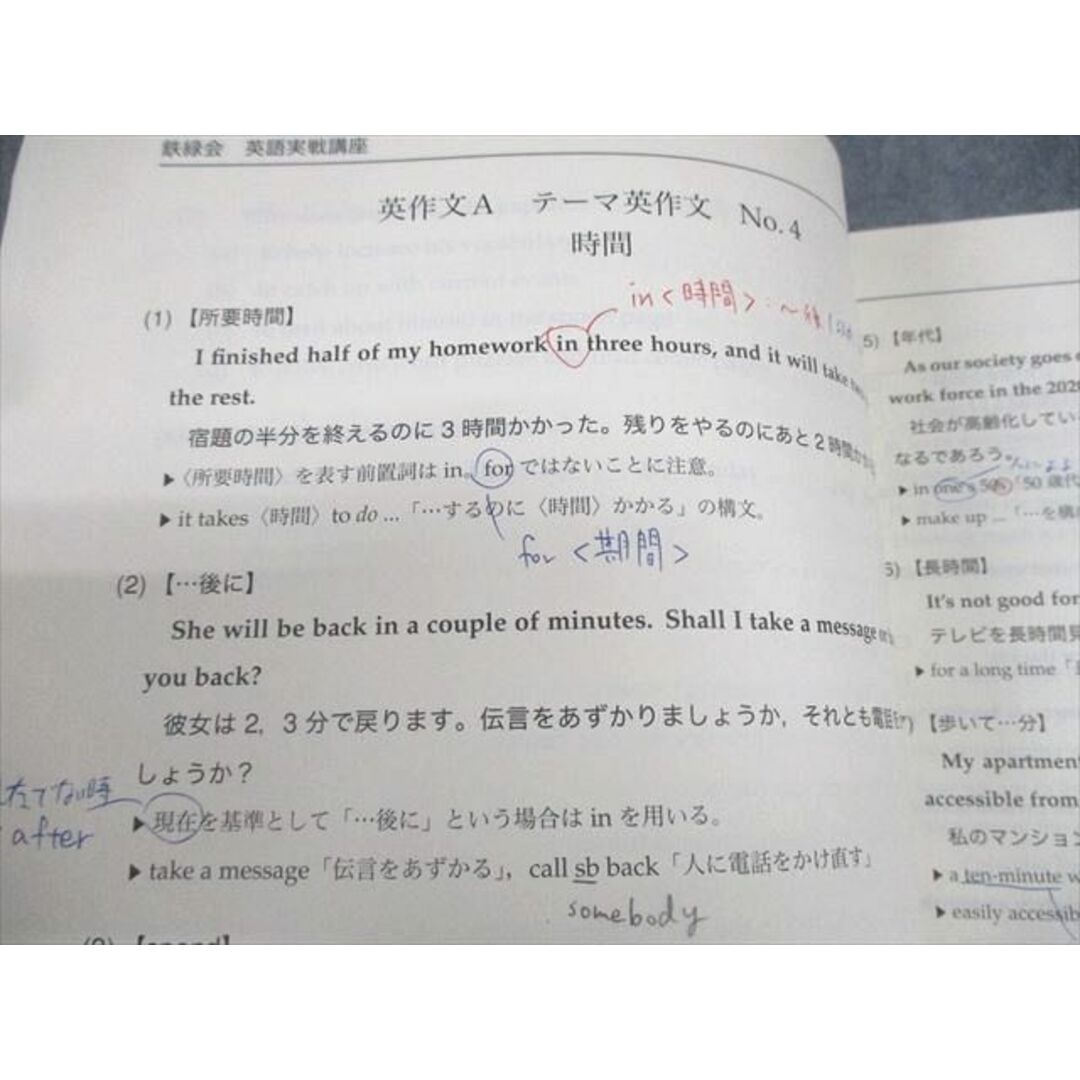 鉄緑会 英語実戦講座
英作文A テーマ英作文 No.4
時間
in<時間>:~後
(1)【所要時間】
I finished half of my homework in three hours, and it will take
the rest.
宿題の半分を終えるのに3時間かかった。残りをやるのにあと2時間
▶〈所要時間〉を表す前置詞は in。for ではないことに注意。
▶it takes〈時間〉to do ...「…するのに〈時間〉かかる」の構文。
for <期間>
(2)【…後に】
She will be back in a couple of minutes. Shall I take a message or
you back?
彼女は2, 3分で戻ります。伝言をあずかりましょうか, それとも電話を
しょうか?
たてない時
after
▶現在を基準として「…後に」という場合は in を用いる。
▶take a message「伝言をあずかる」, call sb back「人に電話をかけ直す」
somebody
5)【年代】
As our society goes
work force in the 202
社会が高齢化してい
なるであろう。
▶in one's 50s「50歳代
▶make up ...「…を構
6)【長時間】
It's not good for
テレビを長時間見
▶for a long time「
【歩いて…分】
My apartmen
accessible from
私のマンション
▶a ten-minute w
▶easily accessib